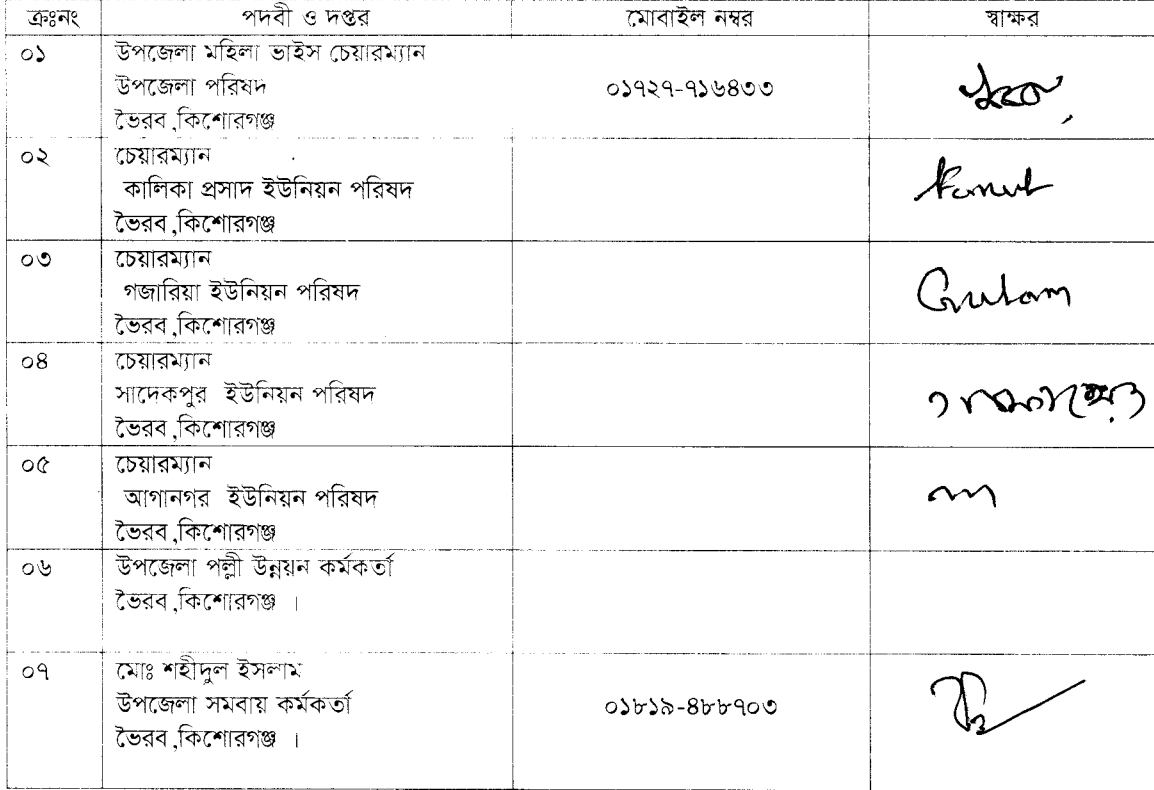 ক্রঃনং পদবী ও দপ্তর মোবাইল নম্বর স্বাক্ষর
০১ উপজেলা মহিলা ভাইস চেয়ারম্যান
উপজেলা পরিষদ ০১৭২৭-৭১৬৪৩৩
ভৈরব,কিশোরগঞ্জ
০২ চেয়ারম্যান
কালিকা প্রসাদ ইউনিয়ন পরিষদ
ভৈরব,কিশোরগঞ্জ
০৩ চেয়ারম্যান
গজারিয়া ইউনিয়ন পরিষদ
ভৈরব,কিশোরগঞ্জ
০৪ চেয়ারম্যান
সাদেকপুর ইউনিয়ন পরিষদ
ভৈরব,কিশোরগঞ্জ
০৫ চেয়ারম্যান
আগানগর ইউনিয়ন পরিষদ
ভৈরব,কিশোরগঞ্জ
০৬ উপজেলা পল্লী উন্নয়ন কর্মকর্তা
ভৈরব,কিশোরগঞ্জ ।
০৭ মোঃ শহীদুল ইসলাম
উপজেলা সমবায় কর্মকর্তা ০১৮১৯-৪৮৮৭০৩
ভৈরব,কিশোরগঞ্জ ।